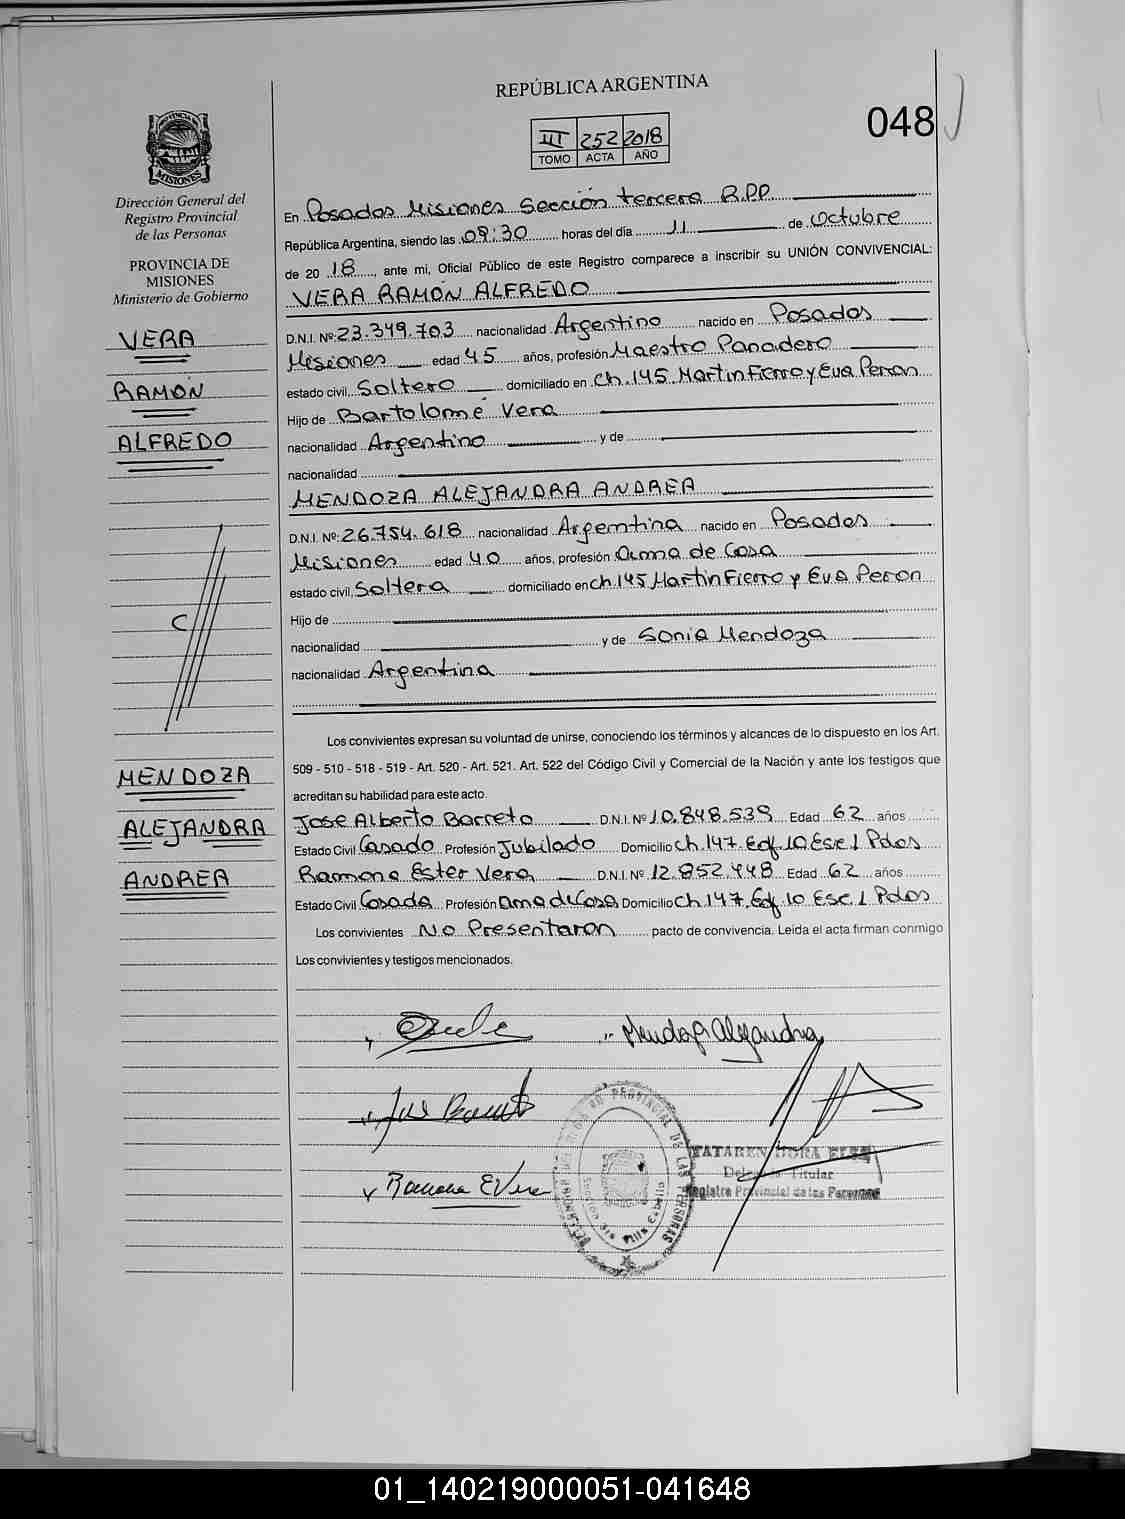 REPÚBLICA ARGENTINA
048
III 252 2018
TOMO ACTA AÑO
PROVINCIA DE
MISIONES
Dirección General del
Registro Provincial
de las Personas
PROVINCIA DE
MISIONES
Ministerio de Gobierno
VERA
RAMÓN
ALFREDO
C
MENDOZA
ALEJANDRA
ANDREA
En Posadas Misiones Sección tercera R.P.P.
República Argentina, siendo las 09:30 horas del día 11 de Octubre
de 20 18, ante mi, Oficial Público de este Registro comparece a inscribir su UNIÓN CONVIVENCIAL:
VERA RAMÓN ALFREDO
D.N.I. Nº: 23.349.703 nacionalidad Argentino nacido en Posadas
Misiones edad 45 años, profesión Maestro Panadero
estado civil Soltero domiciliado en Ch.145 Martin Fierro y Eva Peron
Hijo de Bartolomé Vera
nacionalidad Argentino y de
nacionalidad
MENDOZA ALEJANDRA ANDREA
D.N.I. Nº: 26.754.618 nacionalidad Argentina nacido en Posadas
Misiones edad 40 años, profesión ama de Casa
estado civil Soltera domiciliado en Ch 145 Martin Fierro y Eva Peron
Hijo de
nacionalidad y de Sonia Mendoza
nacionalidad Argentina
Los convivientes expresan su voluntad de unirse, conociendo los términos y alcances de lo dispuesto en los Art.
509 - 510 - 518 - 519 - Art. 520 - Art. 521. Art. 522 del Código Civil y Comercial de la Nación y ante los testigos que
acreditan su habilidad para este acto.
Jose Alberto Barreto D.N.I. Nº 10.848.539 Edad 62 años
Estado Civil Casado Profesión Jubilado Domicilio Ch.147. Edf.10 Esc.1 Pdas
Ramona Ester Vera D.N.I. Nº 12.852.448 Edad 62 años
Estado Civil Casada Profesión ama de Casa Domicilio Ch 147. Edf.10 Esc.1 Pdas
Los convivientes No Presentaron pacto de convivencia. Leída el acta firman conmigo
Los convivientes y testigos mencionados.
Mendoza Alejandra
Jose Barreto
Ramona E Vera
PROVINCIAL DE LAS PERSONAS
Sección 3ra Villa Cabello
TATAREN DORA ELSA
Delegada Titular
Registro Provincial de las Personas
01_140219000051-041648